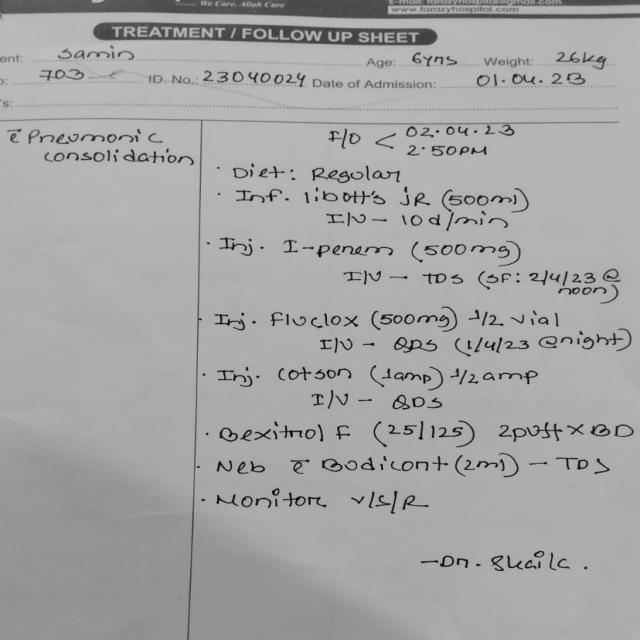 We Care, Allah Cure
E-mail: farazyhospital@gmail.com
www.farazyhospital.com
TREATMENT / FOLLOW UP SHEET
ent: Samin Age: 6yrs Weight: 26kg
o: 703 ID. No.: 23040024 Date of Admission: 01.04.23
's:
c̄ Pneumonic
consolidation
F/O < 02.04.23
2.50PM
• Diet: Regular
• Inf. libott's JR (500ml)
I/V - 10d/min
• Inj. I-penem (500mg)
I/V - TDS (SF: 2/4/23 @
noon)
• Inj. Fluclox (500mg) 1/2 vial
I/V - QDS (1/4/23 @night)
• Inj. Cotson (1amp) 1/2 amp
I/V - QDS
• Bexitrol F (25/125) 2puff X BD
• Neb c̄ Budicort (2ml) - TDS
• Monitor v/s/R
- Dr. Shaila.